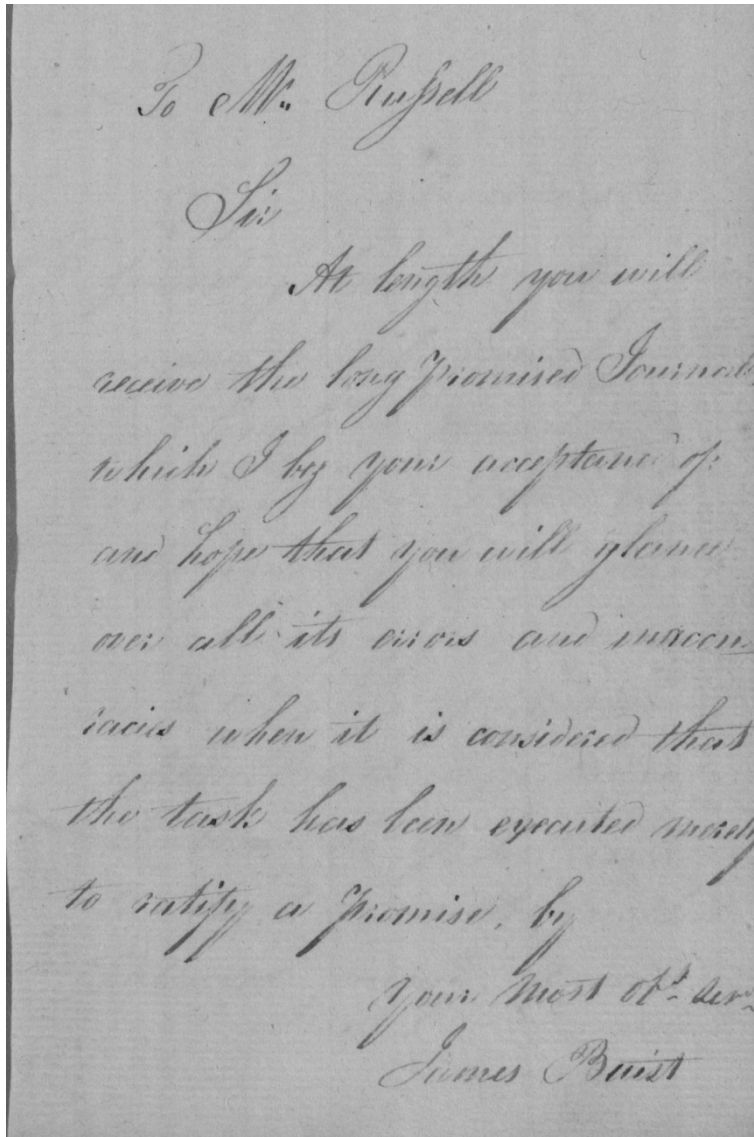 To Mr. Russell
Sir
At length you will
receive the long promised Journal
which I beg your acceptance of
and hope that you will glance
over all its errors and inaccu
racies when it is considered that
the task has been executed merely
to ratify a promise, by
your most obt. Serv
James Buist